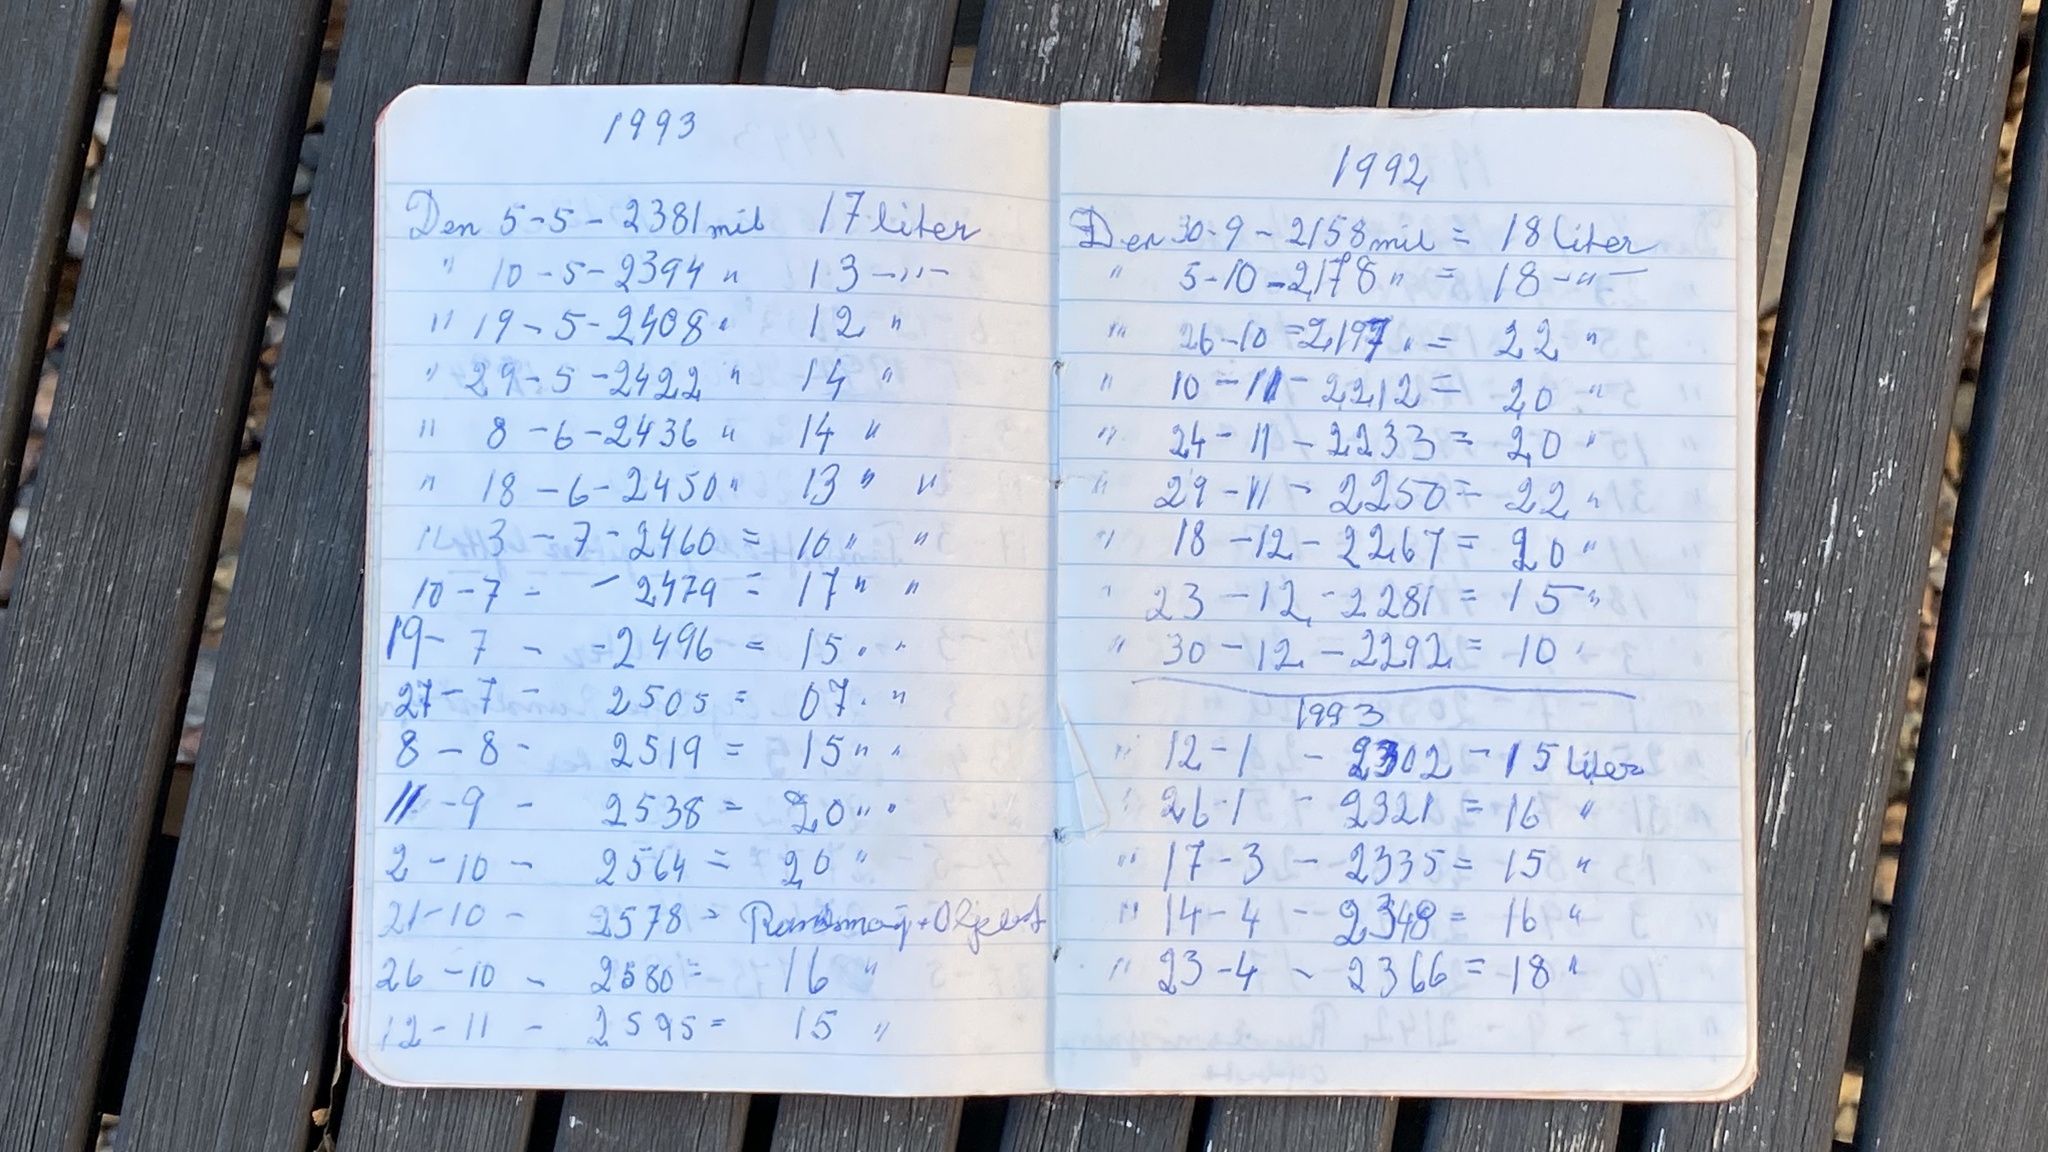 1993
Den 5-5-2381 mil 17 liter
" 10-5-2394 " 13 -"-
" 19-5-2408 " 12 "
" 29-5-2422 " 14 "
" 8-6-2436 " 14 "
" 18-6-2450 " 13 " "
" 3-7-2460 = 10 " "
10-7 - - 2479 = 17 " "
19-7 - -2496 = 15 " "
27-7 - 2505 = 07 " "
8-8 - 2519 = 15 " "
11-9 - 2538 = 20 " "
2-10 - 2564 = 20 "
21-10 - 2578 =
26-10 - 2580 = 16 "
12-11 - 2595 = 15 "
1992
Den 30-9-2158 mil = 18 liter
" 5-10-2178 " = 18 -"-
" 26-10=2197 " = 22 "
" 10-11-2212 = 20 "
" 24-11-2233 = 20 "
" 29-11-2250 = 22 "
" 18-12-2267 = 20 "
" 23-12-2281 = 15 "
" 30-12-2292 = 10 "
1993
" 12-1 - 2302 - 15 liter
" 26-1 - 2321 = 16 "
" 17-3 - 2335 = 15 "
" 14-4 - 2348 = 16 "
" 23-4 - 2366 = 18 "